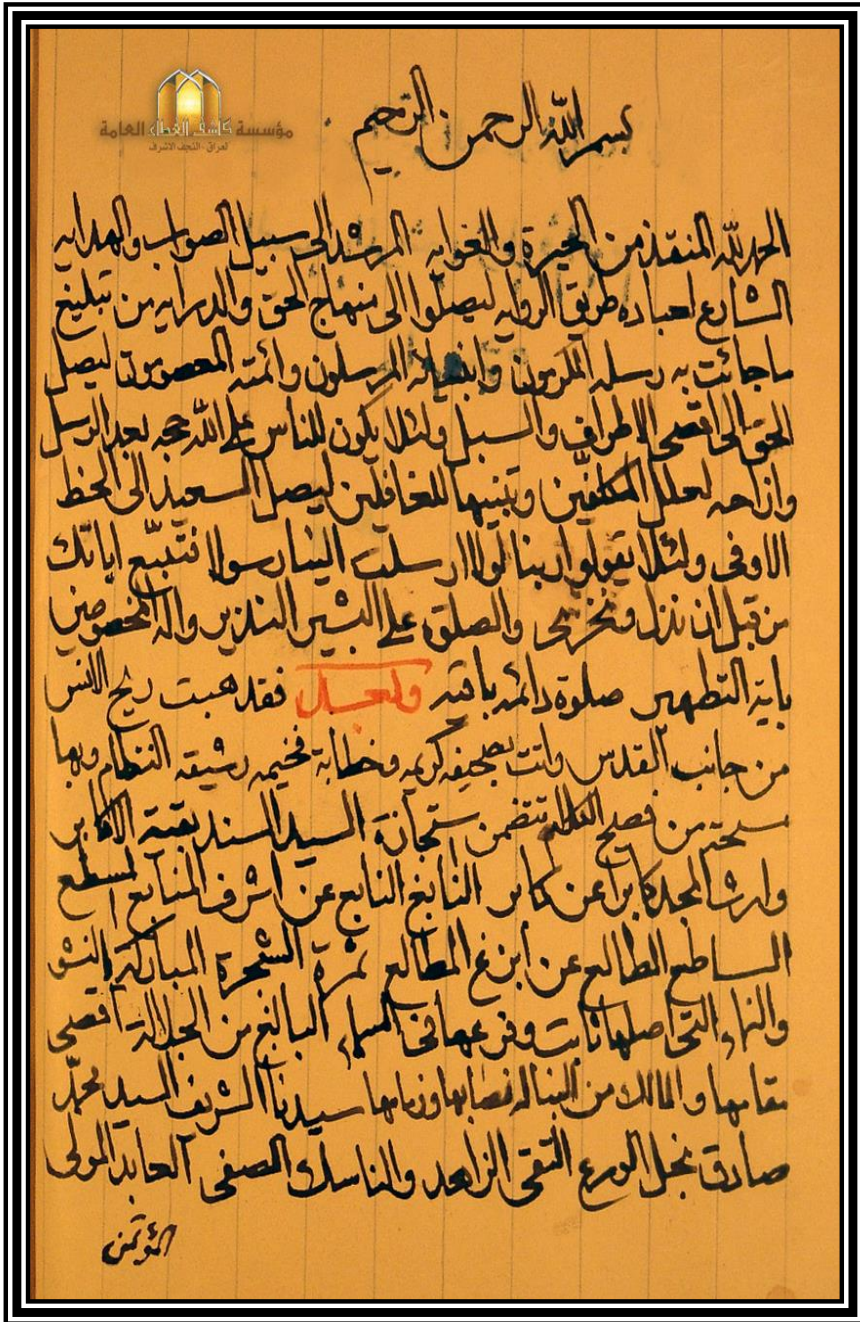 مؤسسة كاشف الغطاء العامة
العراق - النجف الاشرف
بسم الله الرحمن الرحيم
الحمد لله المنقذ من الحيرة والغوايه المرشد الى سبيل الصواب والهدايه
الشارع لعباده طريق الروايه ليصلوا الى منهاج الحق والدرايه من تبليغ
ماجائت به رسله المكرمون وانبيائه المرسلون وائمته المعصومون ليصل
الحق الى اقصى الاطراف والسبل ولئلا يكون للناس على الله حجه بعد الرسل
وازاحه لعلل المكلفين وتنبيها للغافلين ليصل السعيد الى الحظ
الاوفى ولئلا يقولوا ربنا لولا ارسلت الينا رسولا فنتبع اياتك
من قبل ان نذل ونخزى والصلوة على البشير النذير واله المخصوصين
باية التطهير صلوة دائمه باقيه وبعد فقد هبت ريح الانس
من جانب القدس واتت بصحيفه كريمه وخطابة فخيمه رشيقه النظام وبها
مسحة من فصيح الكلام تتضمن استجازة السيد السند بقية الاكابر
وارث المجد كابرا عن كابر النابغ النابع عن اشرف المنابع المسطع
الساطع الطالع عن ابزغ المطالع ثمرة الشجرة المباركة النشو
والنماء التي اصلها ثابت وفرعها في السماء البالغ من الجلالة اقصى
مقامها والمالك من النباله نصابها وزمامها سيدنا الشريف السيد محمد
صادق نجل الورع التقي الزاهد والناسك الصفي العابد المولى
المؤتمن